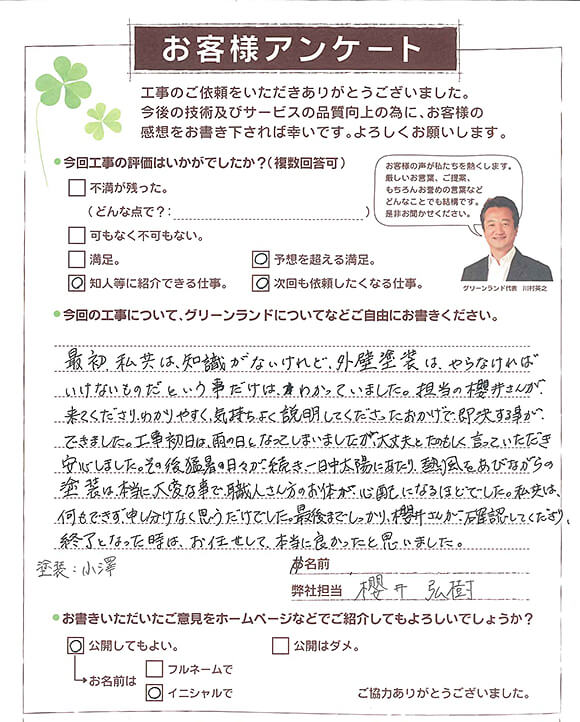 お客様アンケート
工事のご依頼をいただきありがとうございました。
今後の技術及びサービスの品質向上の為に、お客様の
感想をお書き下されば幸いです。よろしくお願いします。
・今回工事の評価はいかがでしたか？（複数回答可）
お客様の声が私たちを熱くします。
厳しいお言葉、ご提案、
もちろんお誉めの言葉など
どんなことでも結構です。
是非お聞かせください。
グリーンランド代表 川村英之
□ 不満が残った。
（どんな点で？： ）
□ 可もなく不可もない。
□ 満足。 ○ 予想を超える満足。
○ 知人等に紹介できる仕事。 ○ 次回も依頼したくなる仕事。
・今回の工事について、グリーンランドについてなどご自由にお書きください。
最初、私共は、知識がないけれど、外壁塗装は、やらなければ
いけないものだという事だけは、わかっていました。担当の櫻井さんが、
来てくださり、わかりやすく、気持ちよく説明してくださったおかげで、即決する事が、
できました。工事初日は、雨の日となってしまいましたが、大丈夫とたのもしく言っていただき
安心しました。その後猛暑の日々が続き、一日中太陽にあたり、熱風をあびながらの
塗装は、本当に、大変な事で、職人さん方のお体が、心配になるほどでした。私共は、
何もできず、申し分けなく思うだけでした。最後までしっかり、櫻井さんが確認してくださり、
終了となった時は、お任せして、本当に良かったと思いました。
塗装：小澤
お名前
弊社担当 櫻井 弘樹
・お書きいただいたご意見をホームページなどでご紹介してもよろしいでしょうか？
○ 公開してもよい。 □ 公開はダメ。
→お名前は □ フルネームで
○ イニシャルで
ご協力ありがとうございました。